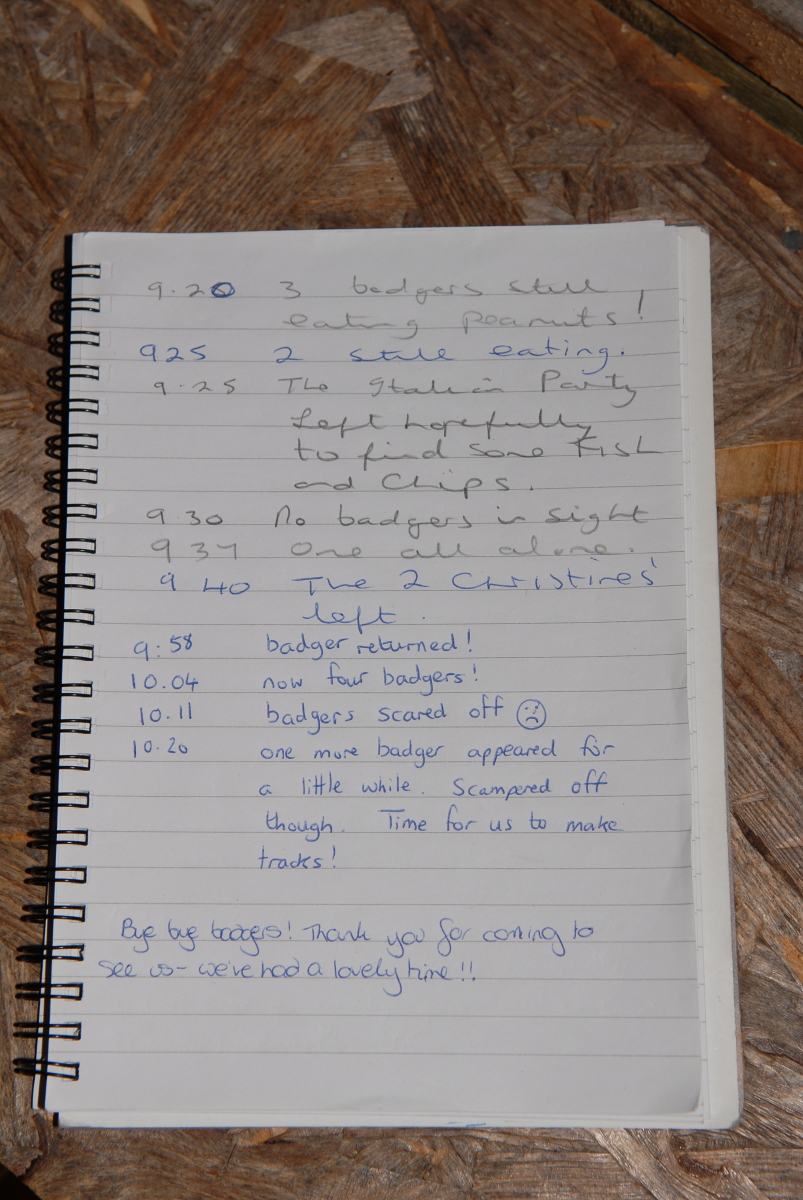 9.20 3 badgers still
eating peanuts!
925 2 still eating.
9.25 The Italian Party
Left hopefully
to find some Fish
and Chips.
9 30 No badgers in sight
9 37 one all alone.
9 40 The 2 Christines'
left.
9:58 badger returned!
10.04 now four badgers!
10.11 badgers scared off ☹
10.20 one more badger appeared for
a little while. Scampered off
though. Time for us to make
tracks!
Bye bye badgers! Thank you for coming to
see us - we've had a lovely time!!